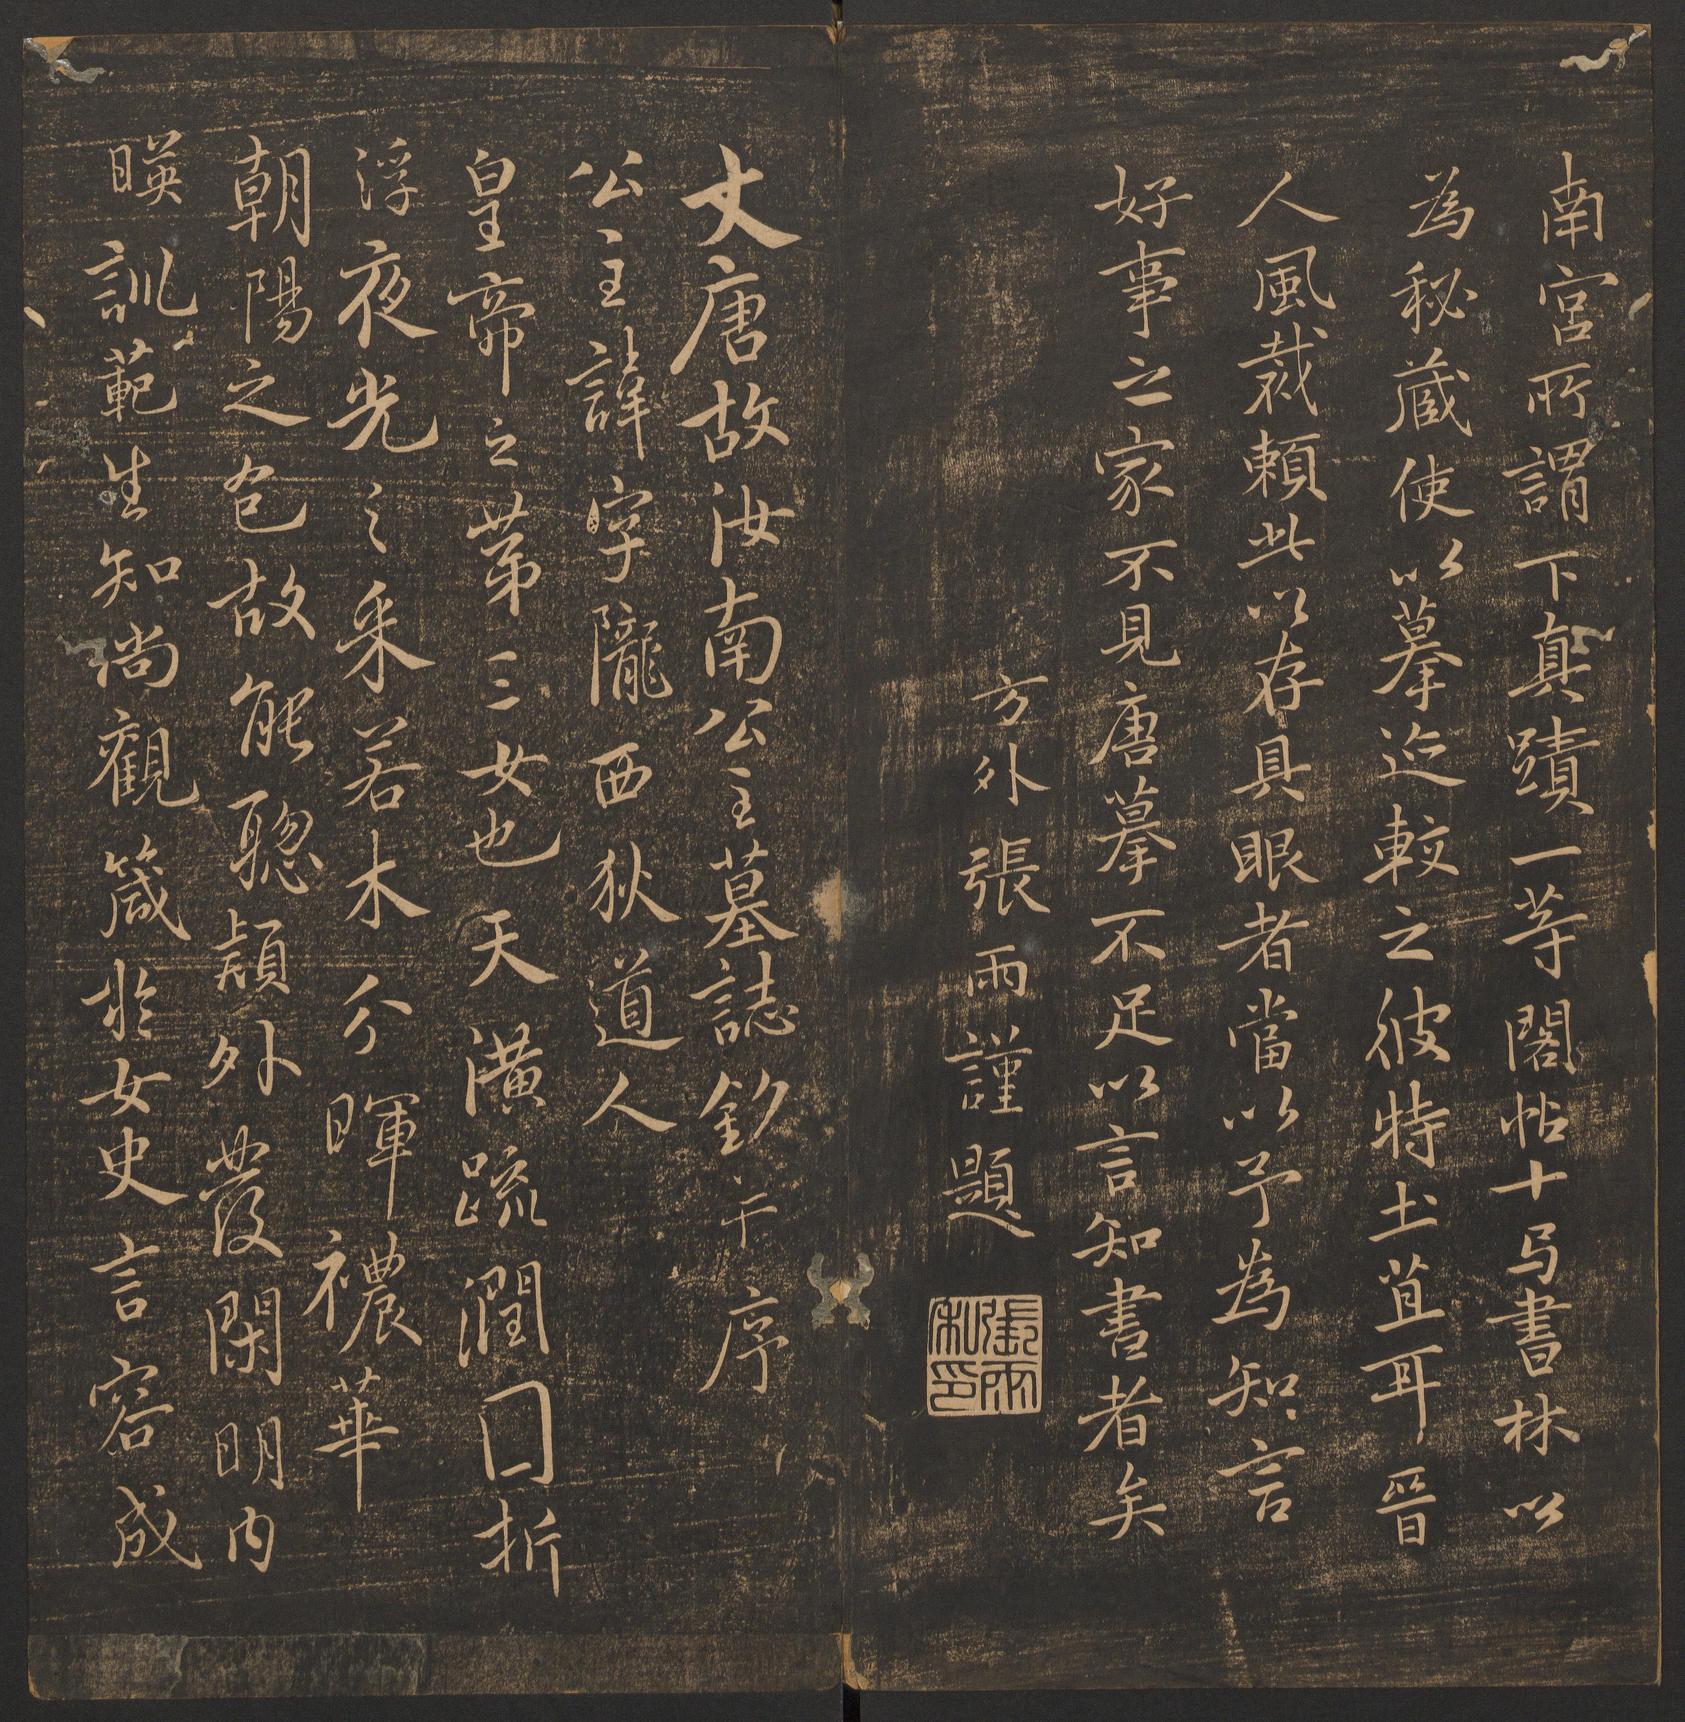 南宮所謂下真蹟一等閣帖十与書林以
為秘藏使以摹迹較之彼特土苴耳晉
人風裁賴此以存具眼者當以予為知言
好事之家不見唐摹不足以言知書者矣
方外張雨謹題
張雨私印
大唐故汝南公主墓誌銘并序
公主諱字隴西狄道人
皇帝之第三女也天潢疏潤圓折
浮夜光之采若木分暉穠華
朝陽之色故能聰穎外發閑明內
暎訓範生知尚觀箴於女史言容成